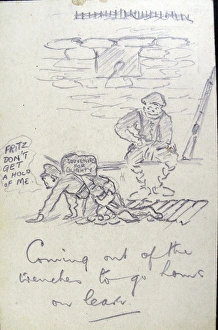 FRITZ
DON'T
GET
A HOLD
OF ME.
SOUVENIRS
FOR
BLIGHTY
Coming out of the
trenches to go home
on leave